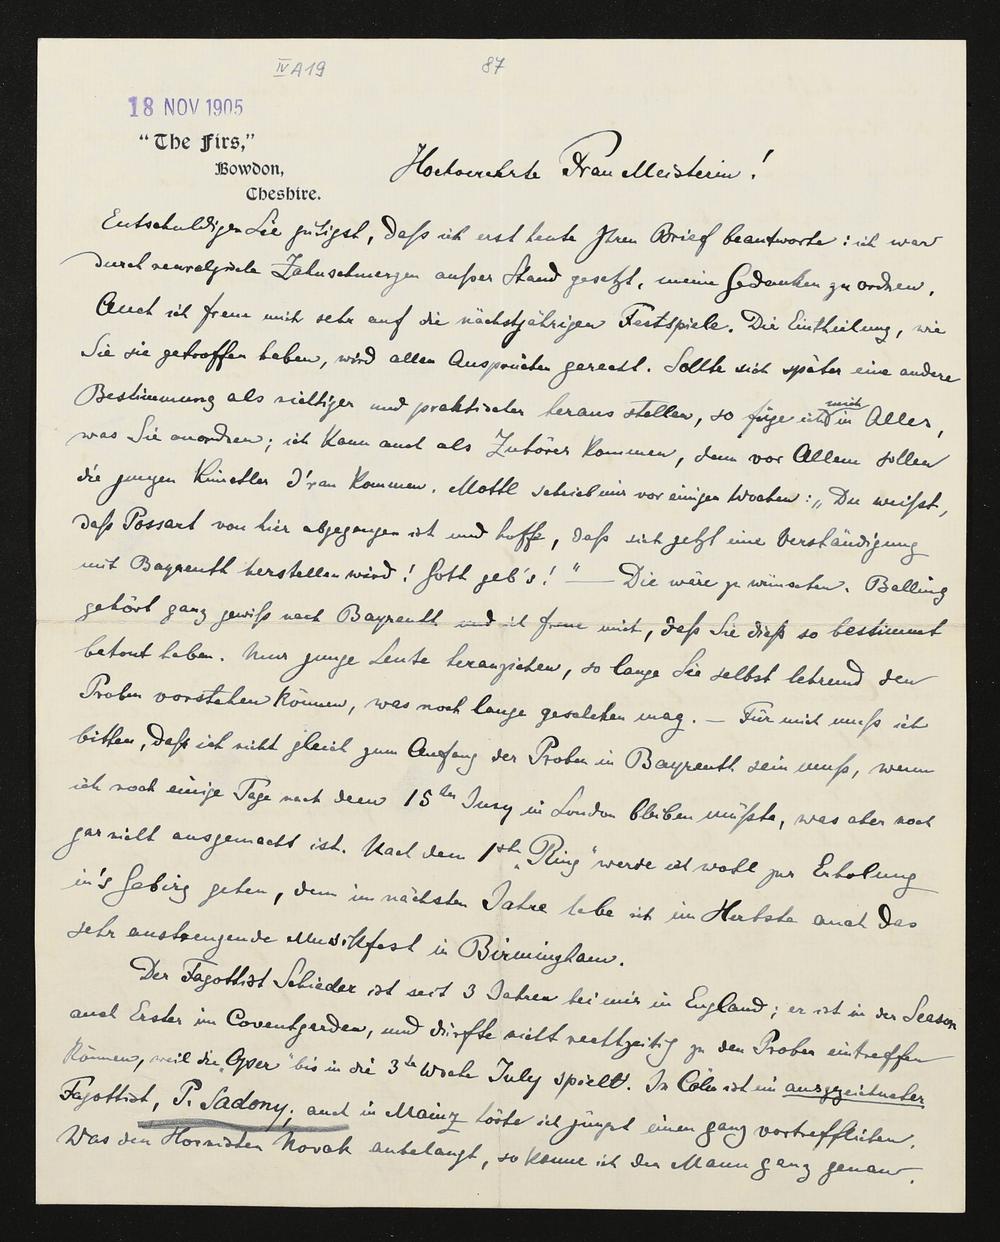 IV A 19
87
18 NOV 1905
"The Firs,"
Bowdon,
Cheshire.
Hochverehrte Frau Meisterin!
Entschuldigen Sie gütigst, daß ich erst heute Ihren Brief beantworte: ich war
durch neuralgische Zahnschmerzen außer Stand gesetzt, meine Gedanken zu ordnen.
Auch ich freue mich sehr auf die nächstjährigen Festspiele. Die Eintheilung, wie
Sie sie getroffen haben, wird allen Ansprüchen gerecht. Sollte sich später eine andere
Bestimmung als richtiger und praktischer heraus stellen, so füge ich mich in Alles,
was Sie anordnen; ich kann auch als Zuhörer kommen, denn vor Allem sollen
die jungen Künstler d'ran kommen. Mottl schrieb mir vor einigen Wochen: „Du weißt,
daß Possart von hier abgegangen ist und hoffe, daß sich jetzt eine Verständigung
mit Bayreuth herstellen wird! Gott geb's!" — Die wäre zu wünschen. Balling
gehört ganz gewiß nach Bayreuth und ich freue mich, daß Sie dieß so bestimmt
betont haben. Nur junge Leute heranziehen, so lange Sie selbst lehrend den
Proben vorstehen können, was noch lange geschehen mag. — Für mich muß ich
bitten, daß ich nicht gleich zum Anfang der Proben in Bayreuth sein muß, wenn
ich noch einige Tage nach dem 15ten July in London bleiben müßte, was aber noch
gar nicht ausgemacht ist. Nach dem 1sten „Ring" werde ich wohl zur Erholung
in's Gebirg gehen, denn im nächsten Jahre habe ich im Herbste auch das
sehr anstrengende Musikfest in Birmingham.
Der Fagottist Schieder ist seit 3 Jahren bei mir in England; er ist in der Season
auch Erster im Coventgarden, und dürfte nicht rechtzeitig zu den Proben eintreffen
können, weil die „Oper" bis in die 3te Woche July spielt. In Cöln ist ein ausgezeichneter
Fagottist, P. Sadony; auch in Mainz hörte ich jüngst einen ganz vortrefflichen.
Was den Hornisten Novak anbelangt, so kenne ich den Mann ganz genau.